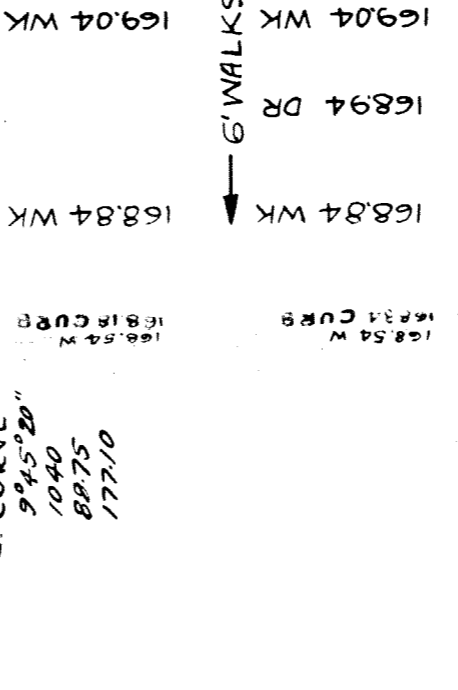 169.04 WK
169.04 WK
6' WALKS
168.94 DR
168.84 WK
168.84 WK
168.54 W
168.18 CURB
168.54 W
CURB
CURVE
9°45°20"
1040
88.75
177.10